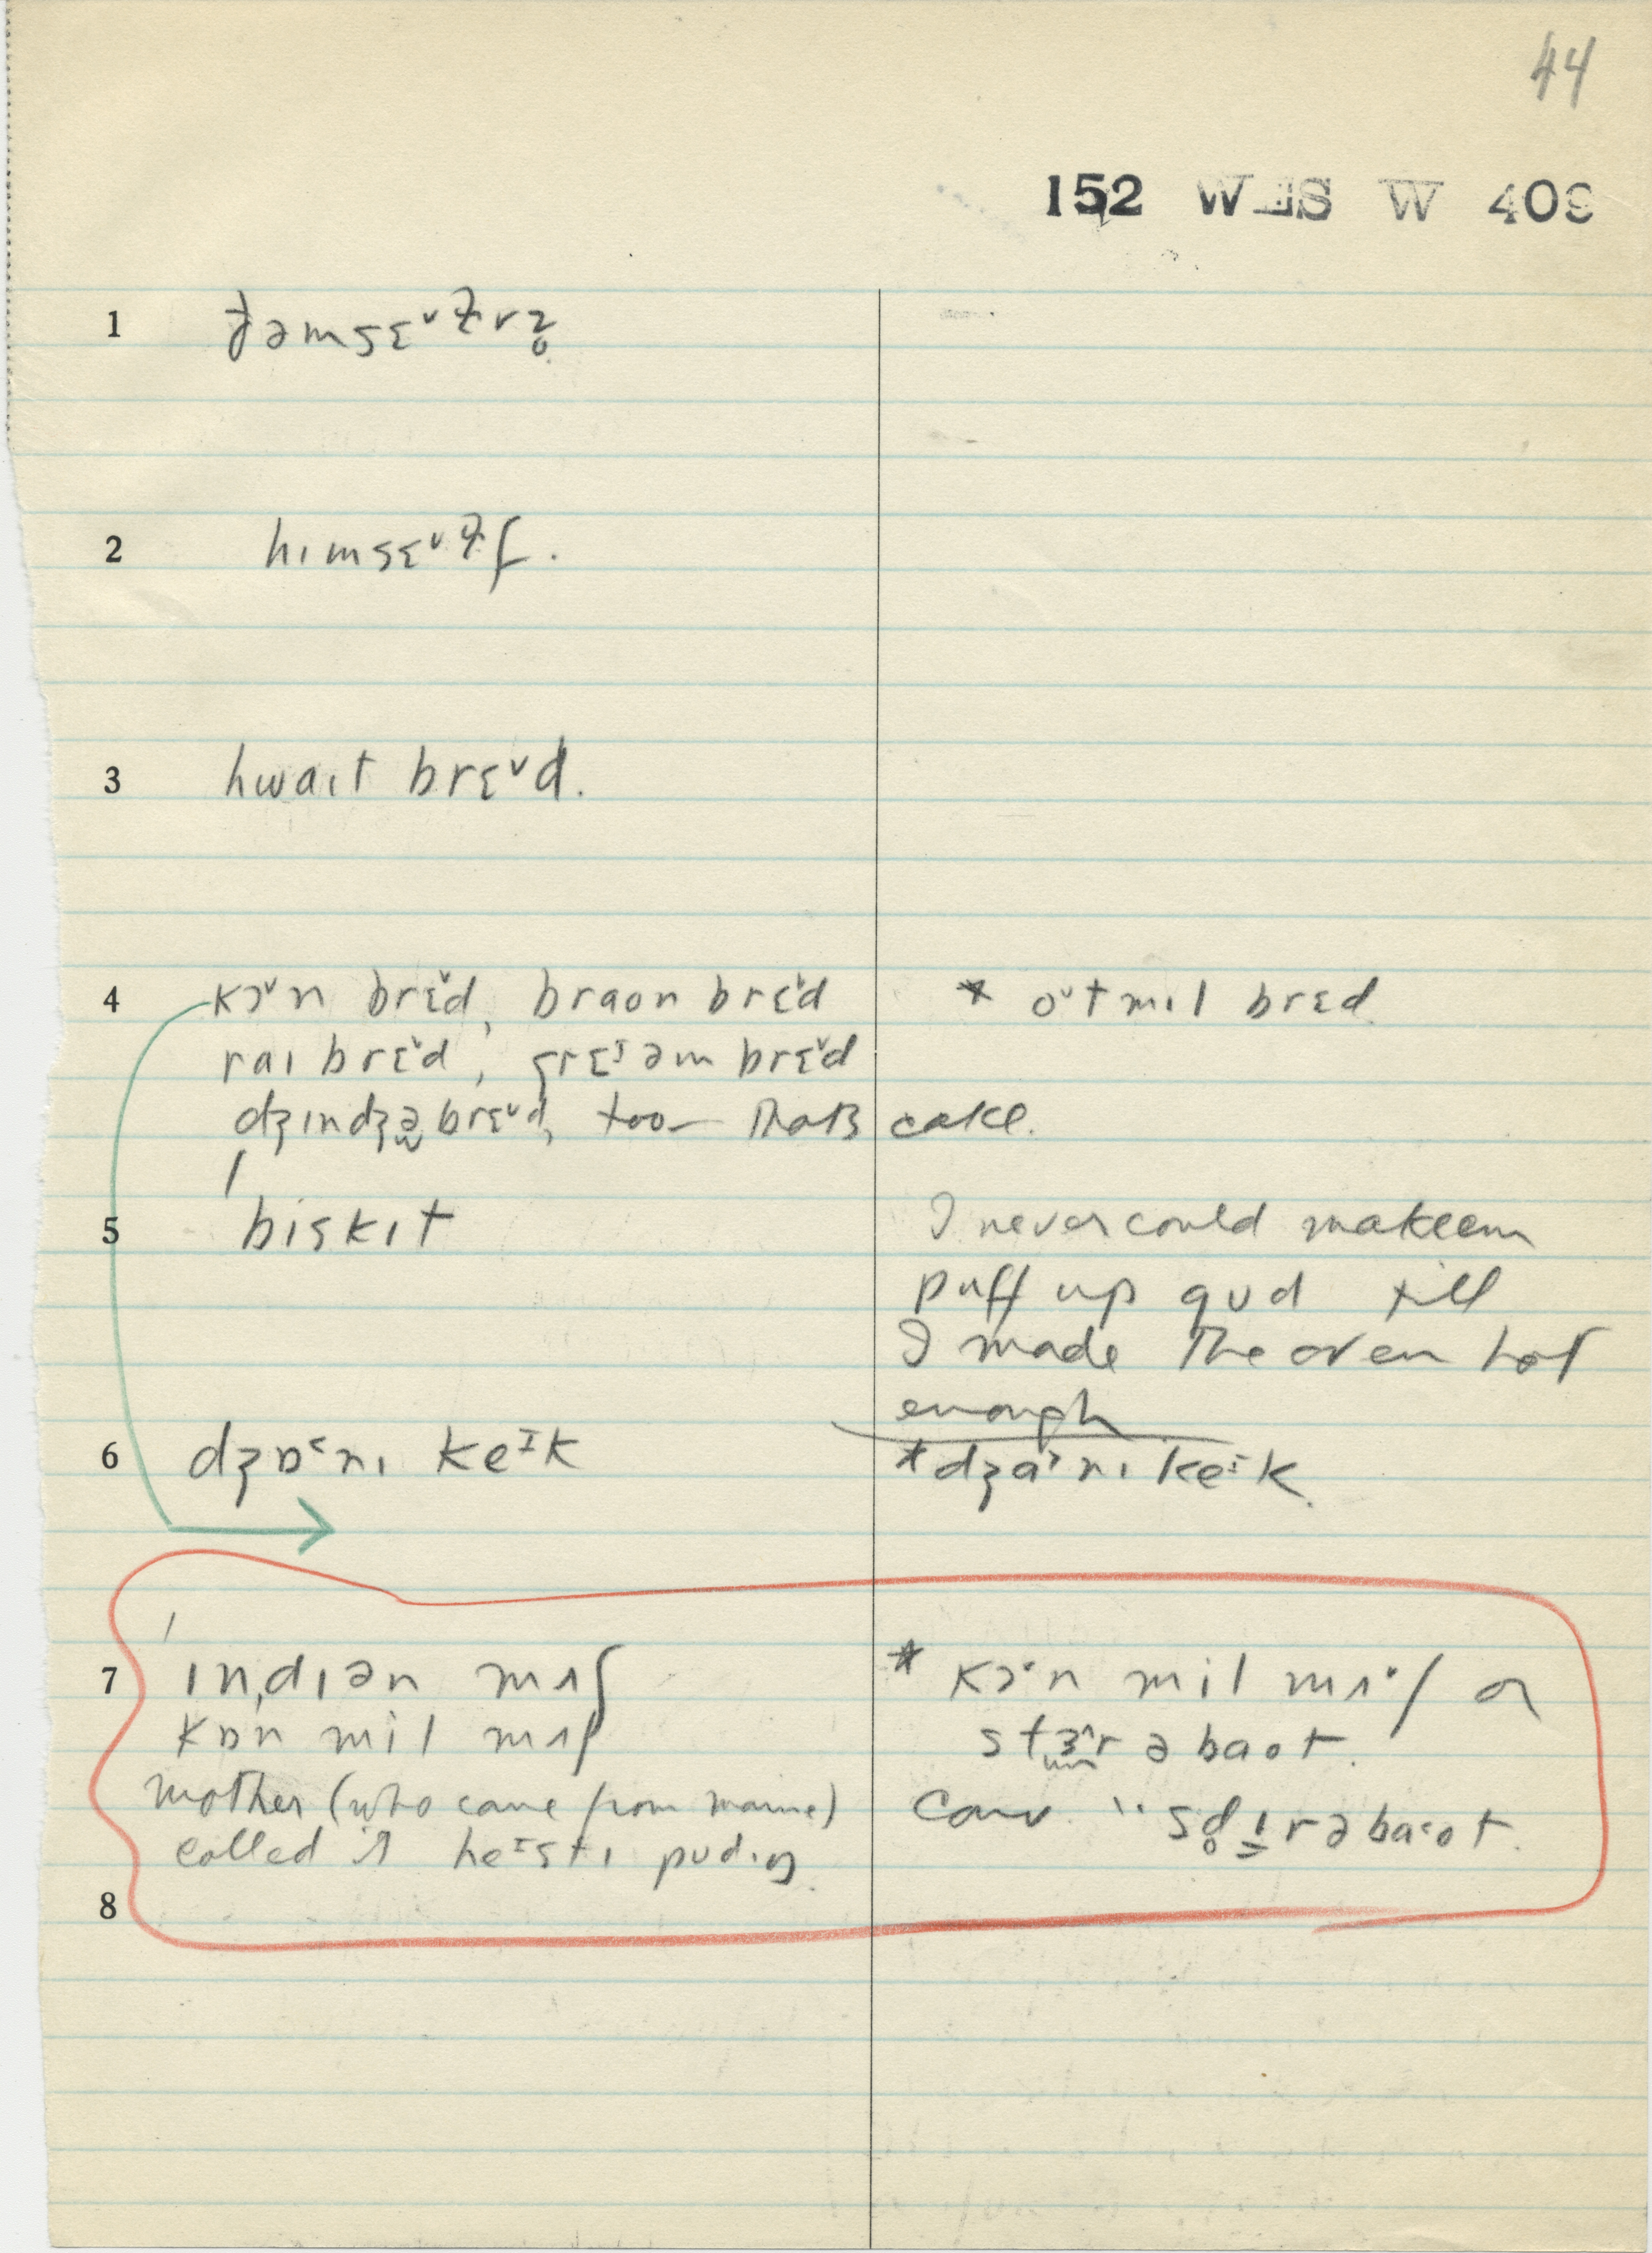 44
152 WES W 409
1 ðəmsɛˇɫvz̥
2 hɪmsɛˇɫf.
3 hwaɪt brɛˇd.
4 kɔˇn brɛˇd, braʊn brɛˇd * oˇtmil brɛd
raɪ brɛˇd, grɛᴵəm brɛˇd
dʒɪndʒə brɛˇd, too — that's cake.
5 biskɪt I never could make em
puff up gʊd till
I made the oven hot
enough
6 dʒɒ˂nɪ keᴵk * dʒa˃nɪ keᴵk.
7 ɪndɪən mʌʃ * kɔ˂n mil mʌʃ or
kɒn mil mʌʃ stɜ^r əbaʊt.
mother (who came from maine) conv. "sd̥ɪrəba˂ʊt.
called it heᴵstɪ pʊdɪŋ.
8